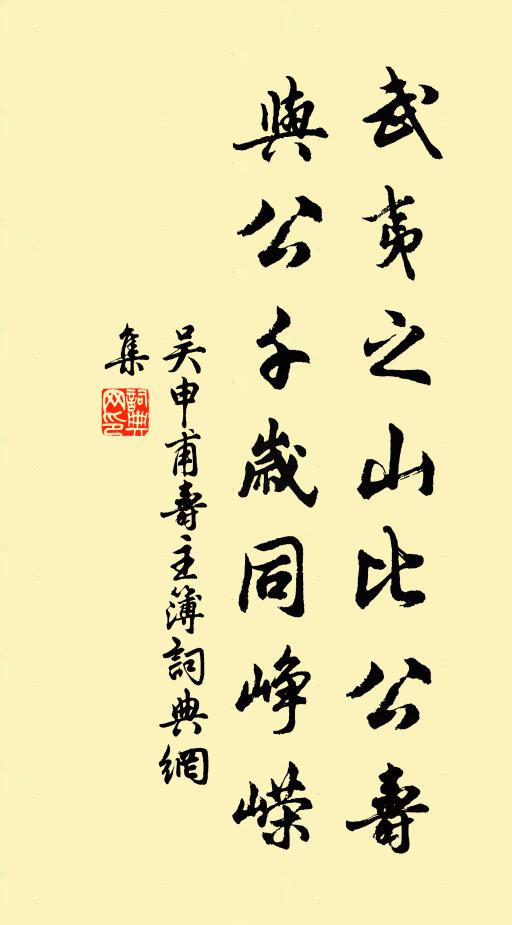 武夷之山比公壽
與公千歲同崢嶸
吴申甫壽主簿詞典網
集
詞典
网印